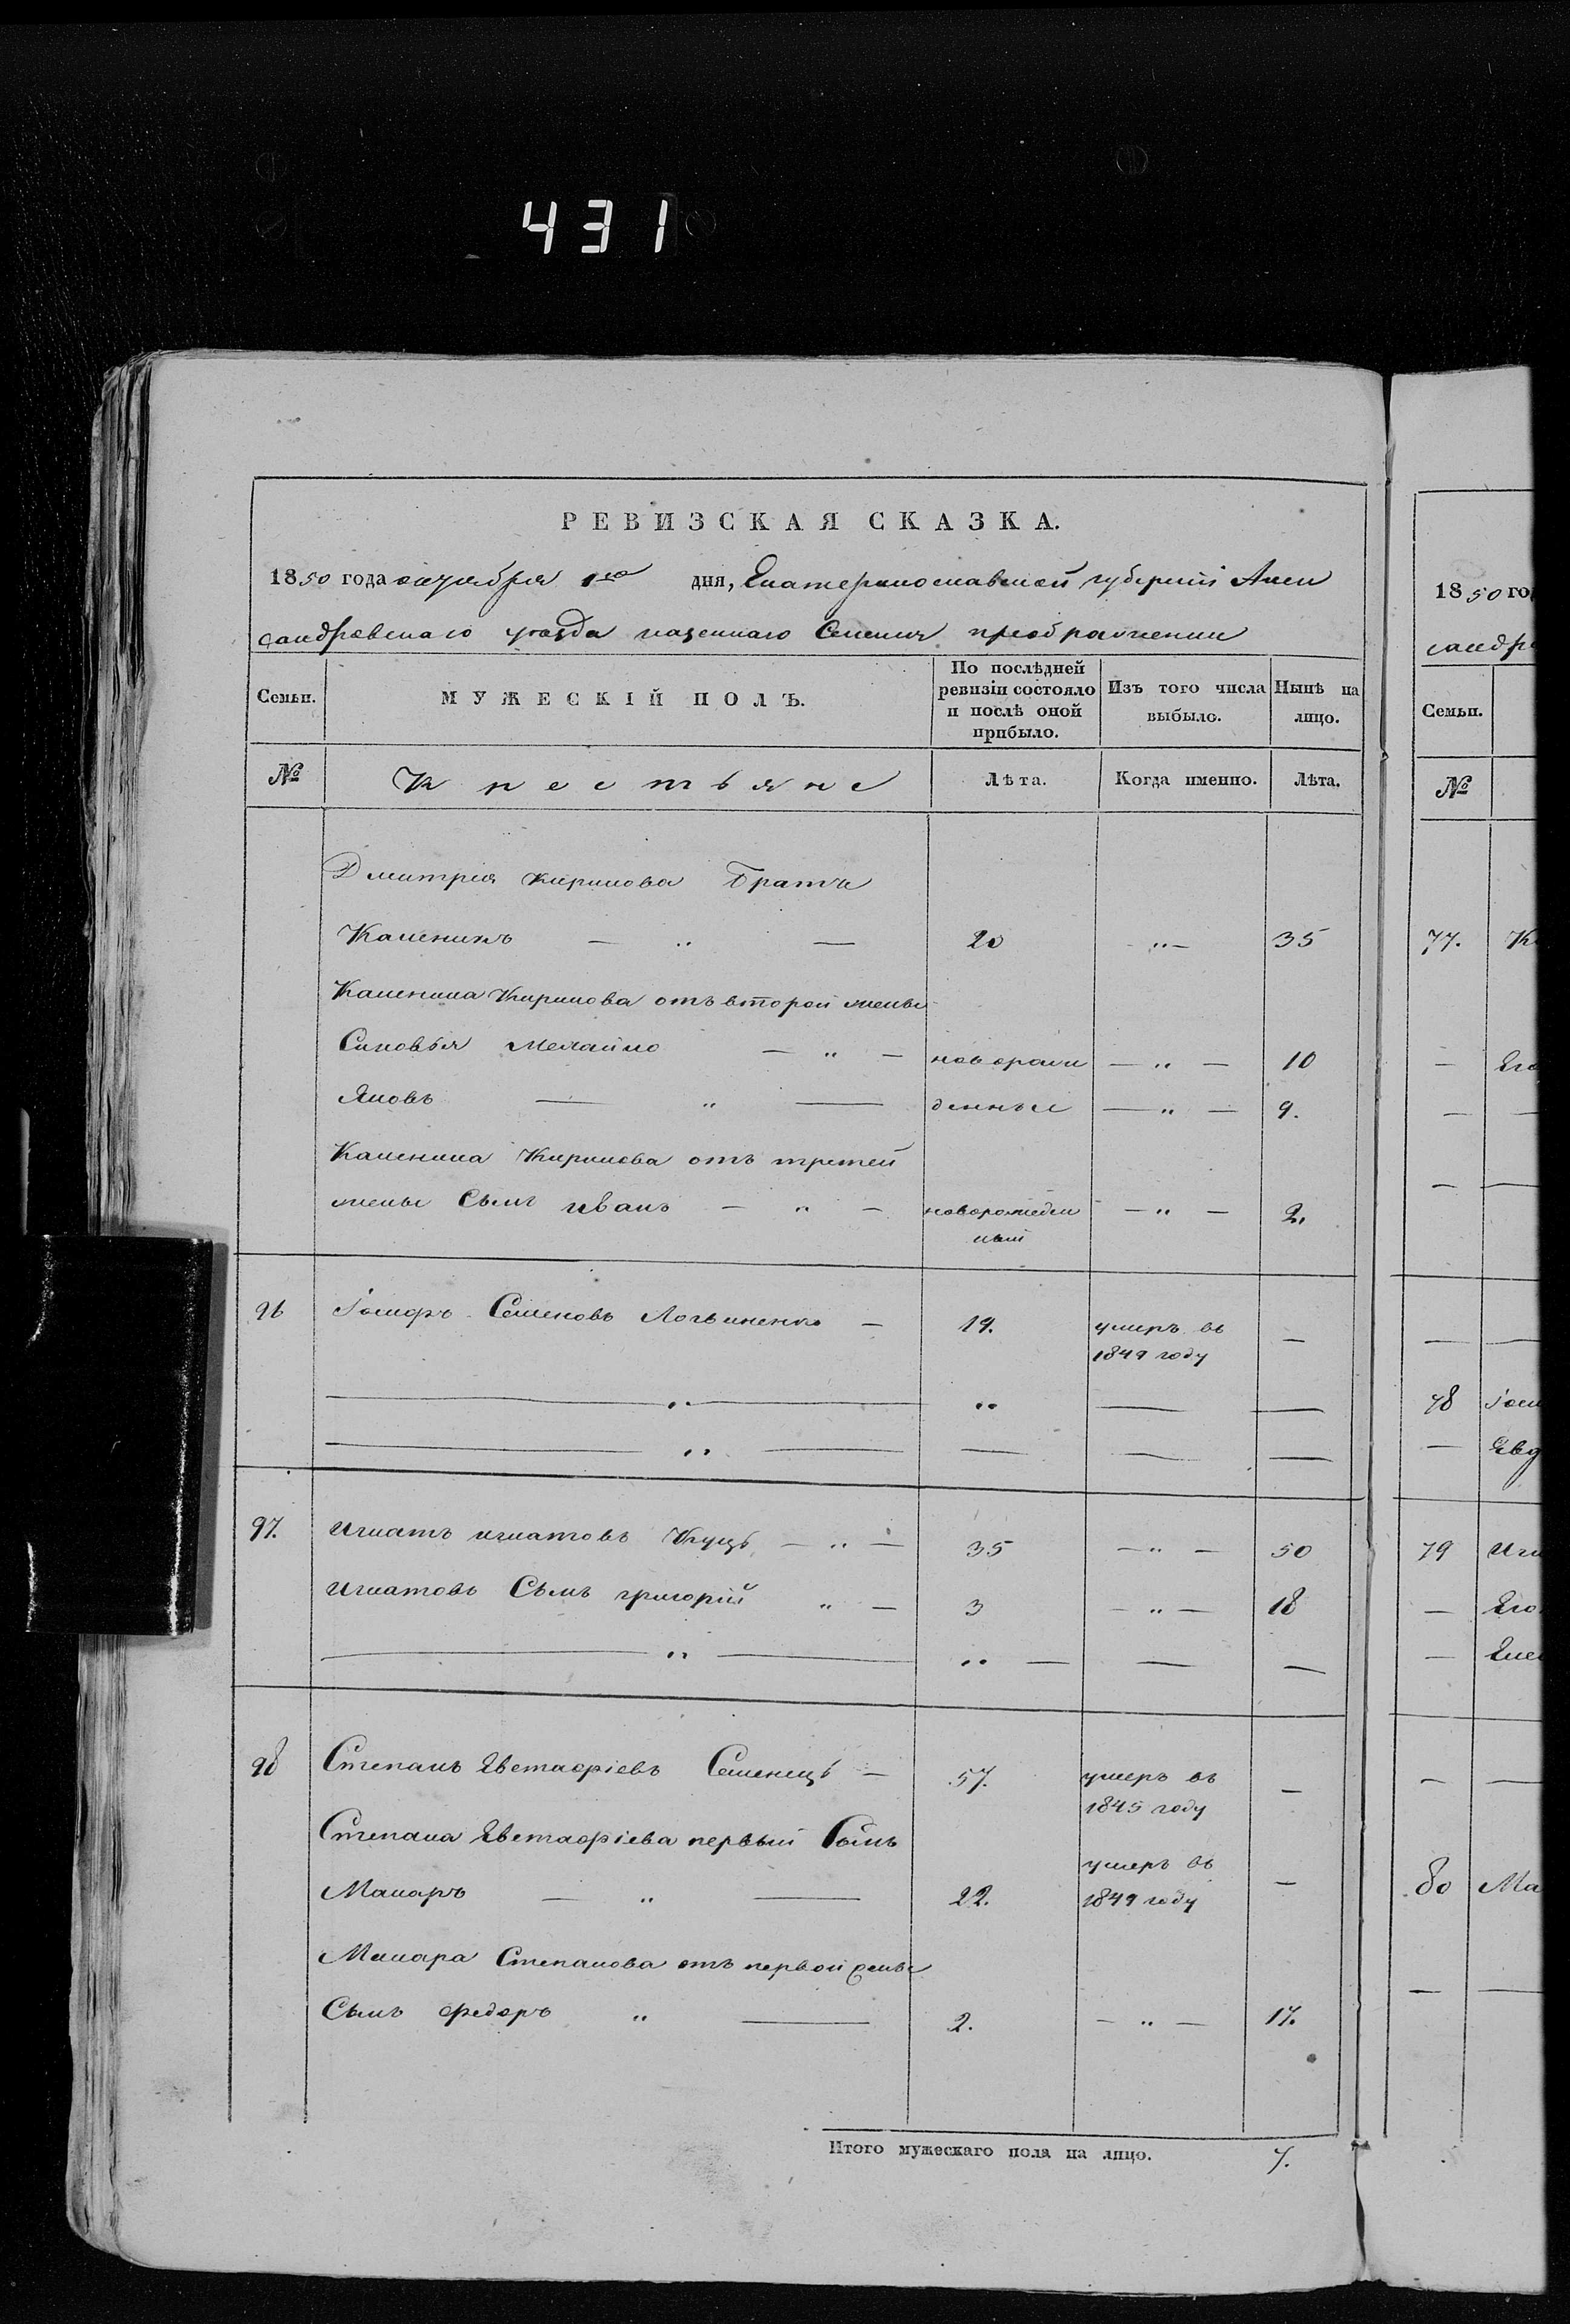 431
РЕВИЗСКАЯ СКАЗКА.
1850 года октября 1го дня, Екатеринославской губерніи Алек
сандровскаго уѣзда казеннаго Селенія преображенки
Семьи.
МУЖЕСКІЙ ПОЛЪ.
По послѣдней
ревизіи состояло
и послѣ оной
прибыло.
Изъ того числа
выбыло.
Нынѣ на
лицо.
№ Крестьяне Лѣта. Когда именно. Лѣта.
Дмитрія Кирилова Братъ
Каленикъ — „ — 20 „ — 35
Каленика Кирилова отъ второй жены
Синовья Михайло — „ — новорож — „ — 10
Яковъ — „ — денные — „ — 9.
Каленика Кирилова отъ третей
жены Сынъ иванъ — „ — новорожден — „ — 2.
ный
96 Іосифъ Семеновъ Логвиненко — 19. умеръ въ —
1849 году
— „ — „ — —
— „ — — — —
97. игнатъ игнатовъ Куцъ — „ — 35 — „ — 50
игнатовъ Сынъ григорій „ — 3 — „ — 18
— „ — „ — — —
98 Степанъ Евстафіевъ Семенецъ — 57. умеръ въ —
1845 году
Степана Евстафіева первый Сынъ
умеръ въ
Макаръ — „ — 22. 1849 году —
Макара Степанова отъ первой жены
Сынъ Федоръ „ — 2. — „ — 17.
Итого мужескаго пола на лицо. 7.
1850 го
сандро
Семьи.
№
77. К
— Его
— —
— —
— —
78 Іоси
— Евд
79 Игн
— Его
— Еле
— —
80 Ма
— —